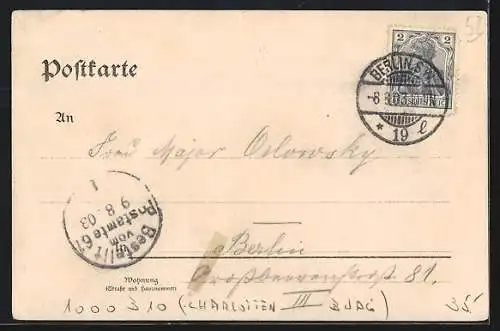 2 2
BERLIN S.W.
-8 8 03
* 19 l
Postkarte
An
Frau Major Orlowsky
1
9 8.03
Bestellt
vom
Postamte 61
Berlin
Wohnung
(Straße und Hausnummer)
Großbeerenstraß 81.
1000 B 10 (CHARLOTTEN III BURG)
35.